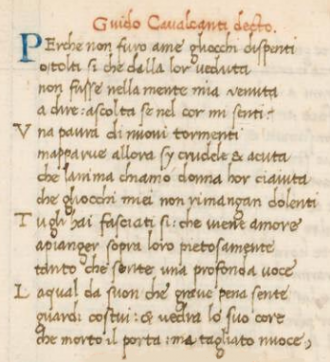 Guido Cavalcanti decto.
PErche non furo ame gliocchi dispenti
o tolti si che dalla lor veduta
non fusse nella mente mia venuta
a dire: ascolta se nel cor mi senti:
Vna paura di nuovi tormenti
mapparue allora sy crudele & acuta
che lanima chiamo donna hor ciaiuta
che gliocchi miei non rimangan dolenti
Tu gli hai fasciati si: che viene amore
apianger sopra loro pietosamente
tanto che sente una profonda voce
Laqual da suon che graue pena sente
guardi costui: & vedra lo suo core
che morto il porta: ma tagliato nuoce,